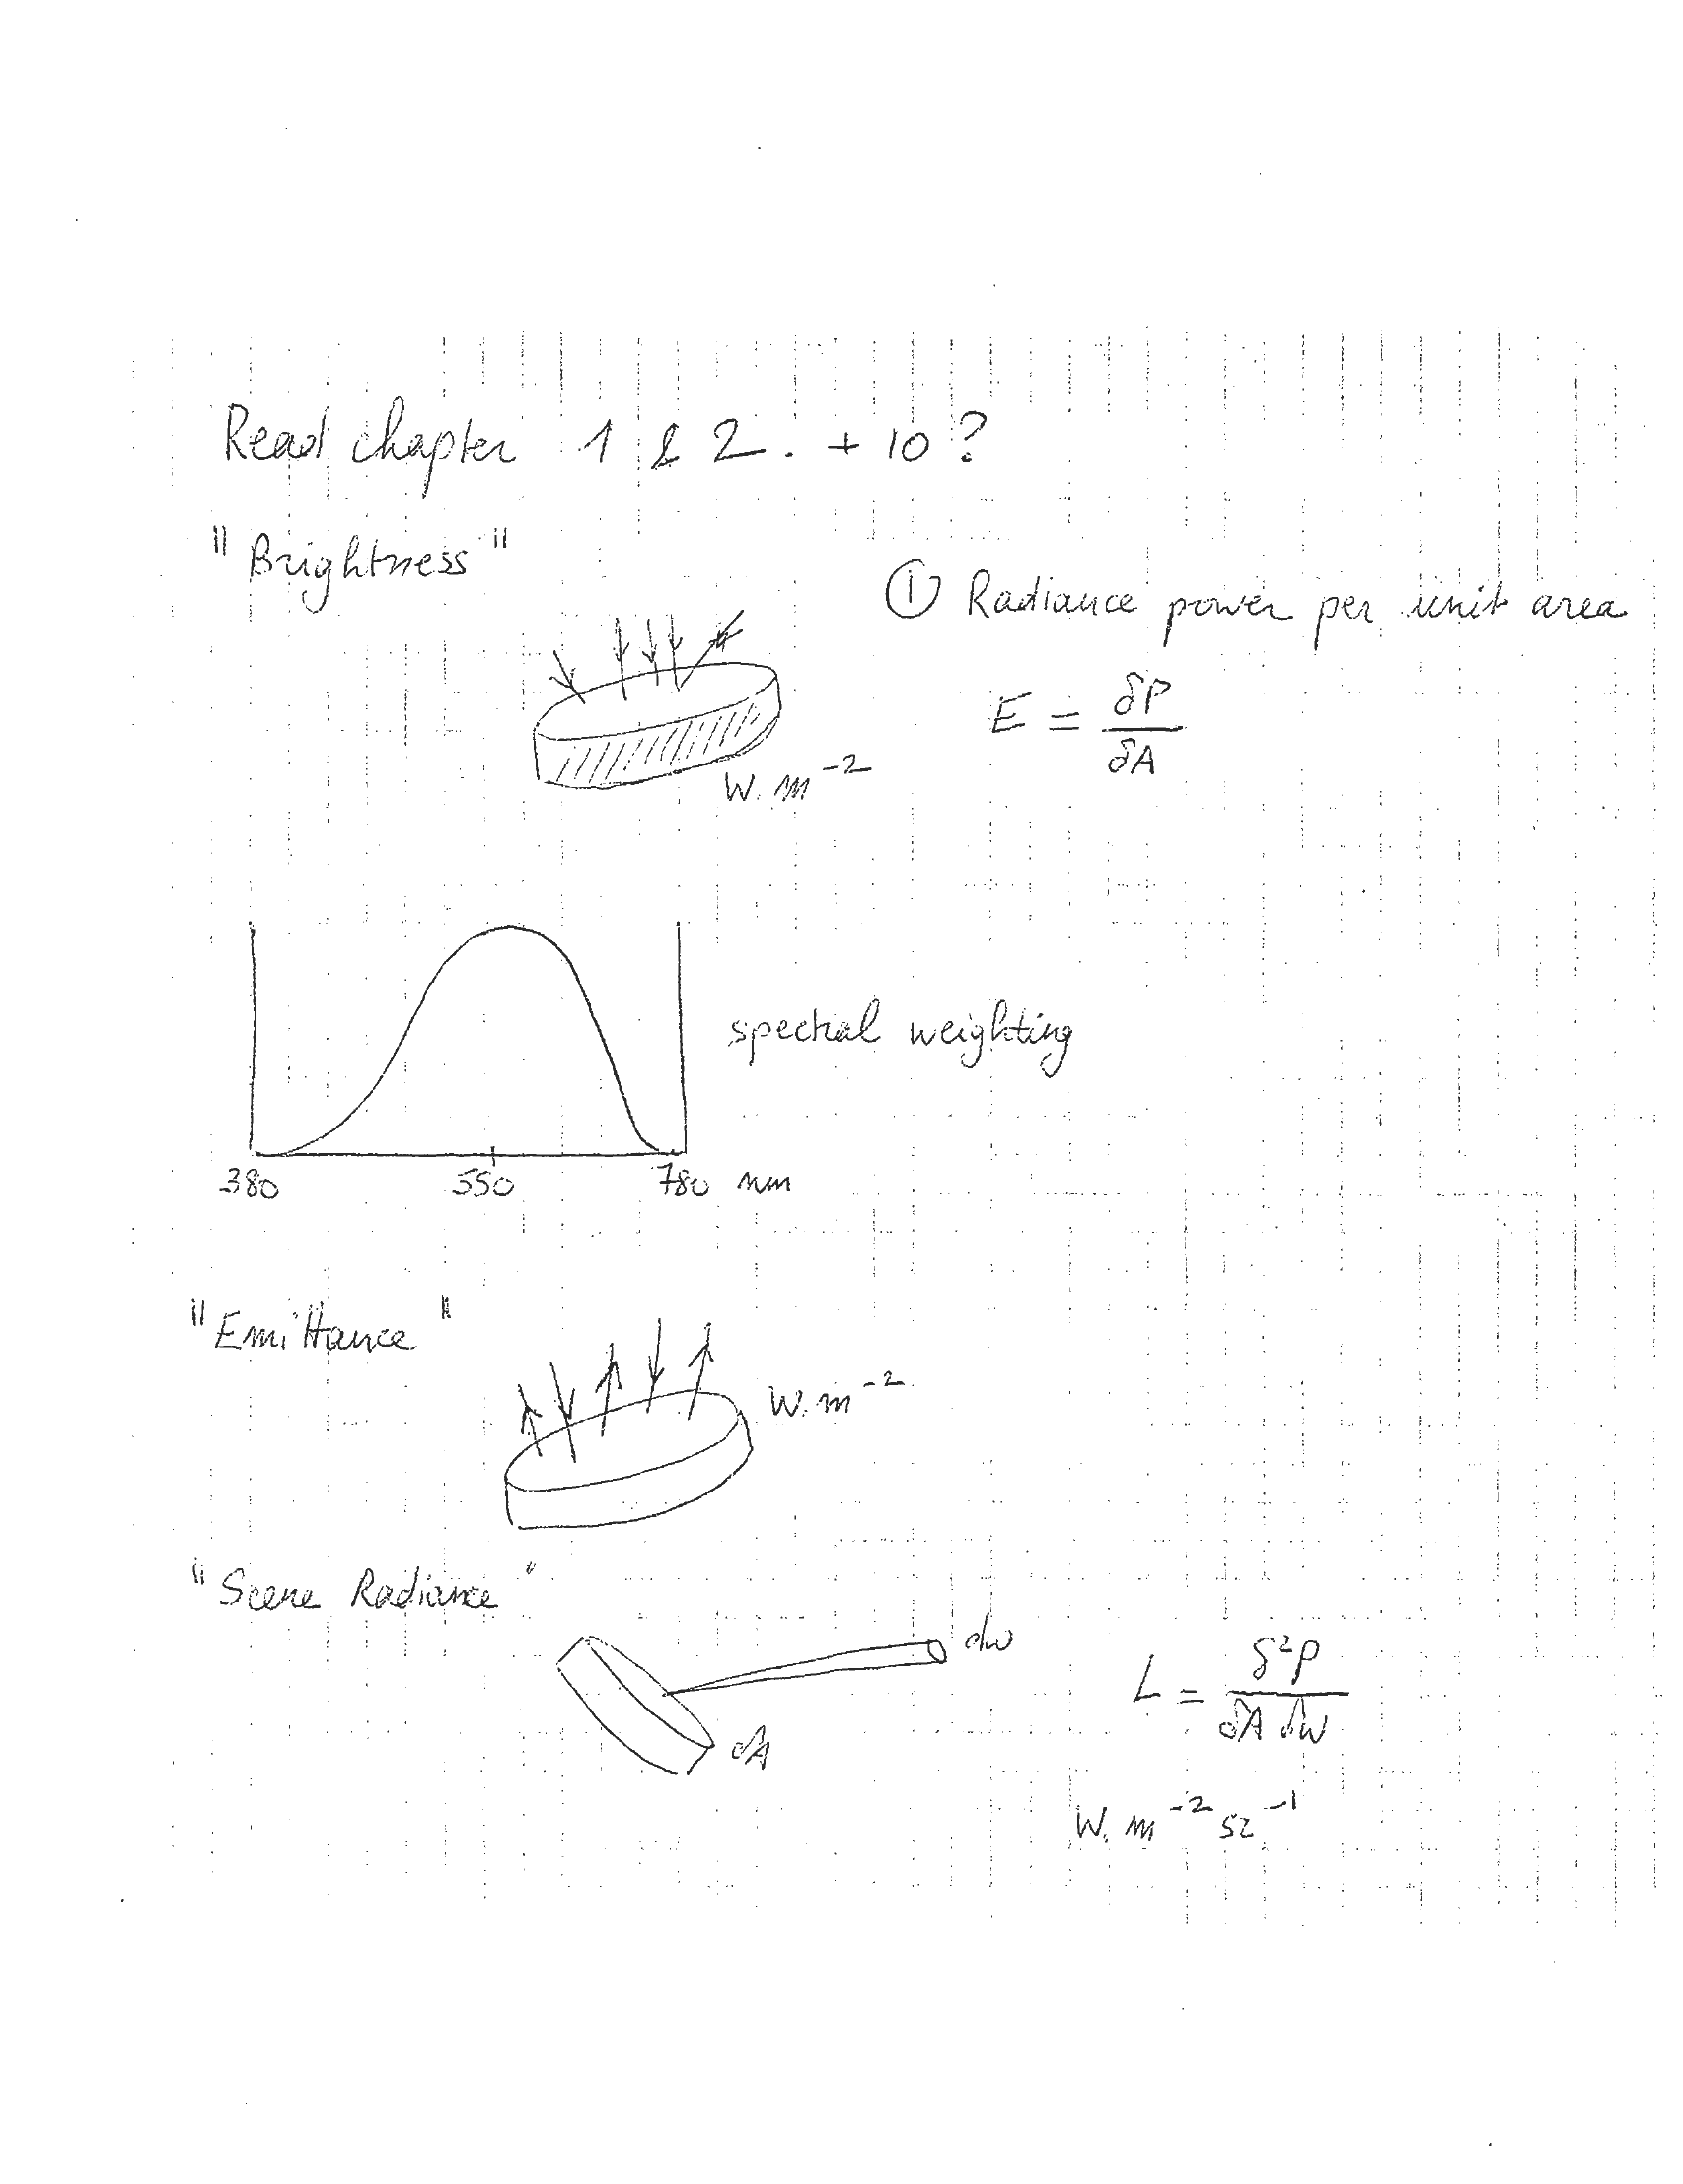 Read chapter 1 & 2. + 10?
"Brightness"
① Radiance power per unit area
E = δP / δA
W. m⁻²
spectral weighting
380 550 780 nm
"Emittance"
W. m⁻²
"Scene Radiance"
dω
dA
L = δ²P / δA δω
W. m⁻² sr⁻¹